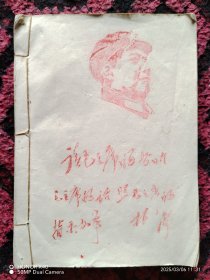 读毛主席的书 听
毛主席的话 照毛主席的
指示办事 林彪
2025/03/06 11:31